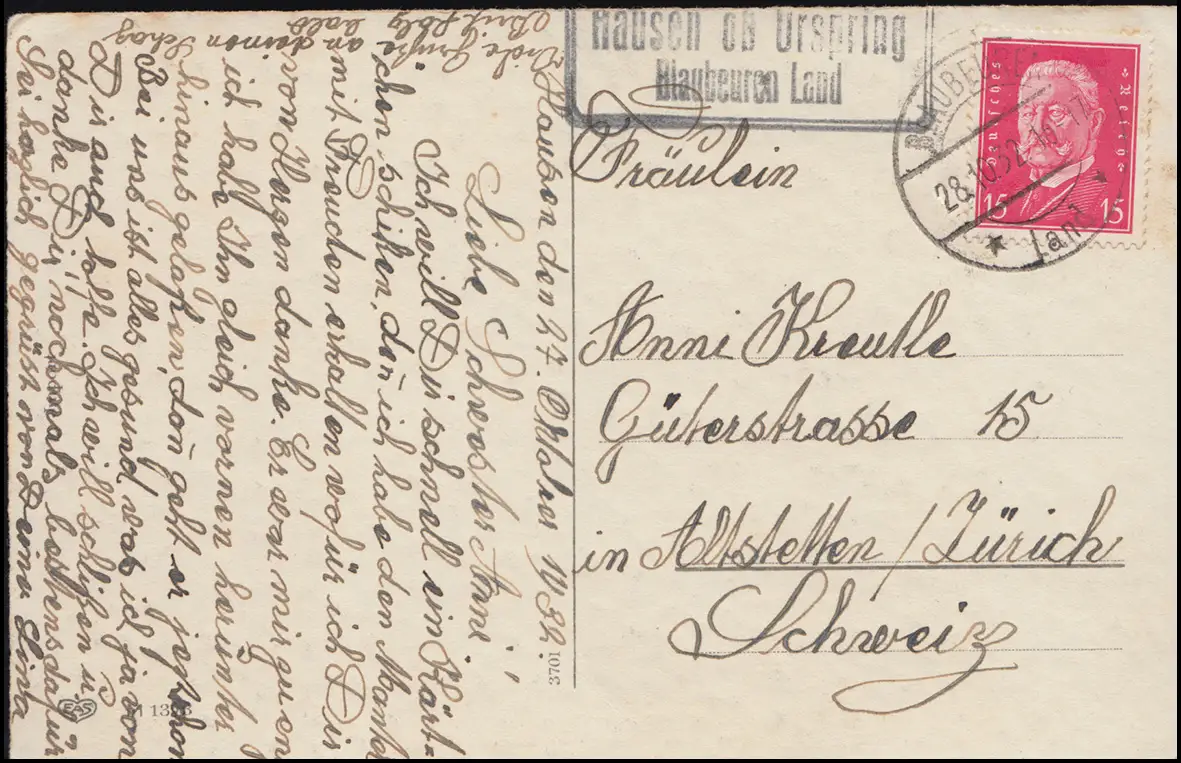 Hausen ob Urspring
Blaubeuren Land
BLAUBEUREN
28.10.32
Land
Deutsches Reich
15 15
Fräulein
Anni Kreutle
Güterstrasse 15
in Altstetten / Zürich
Schweiz
Hausen den 27. Oktober 1932.
Liebe Schwester Anni!
Ich will Dir schnell ein Kärt-
chen schiken, ich habe den Mantel
mit Freuden erhalten wofür ich Dir
von Herzen danke. Er war mir zu eng
ich habe Ihn gleich vornen herunter
hinausgelassen, geht er jez schon
Bei uns ist alles gesund was ich ja von
Dir auch hoffe. Ich will schlißen u.
danke Dir nochmals bestensdafür
Sei herzlich gegrüst von Deine Lina
Viele Grüße
an deinen Schaz
Brif folg
bald
3701
EAS